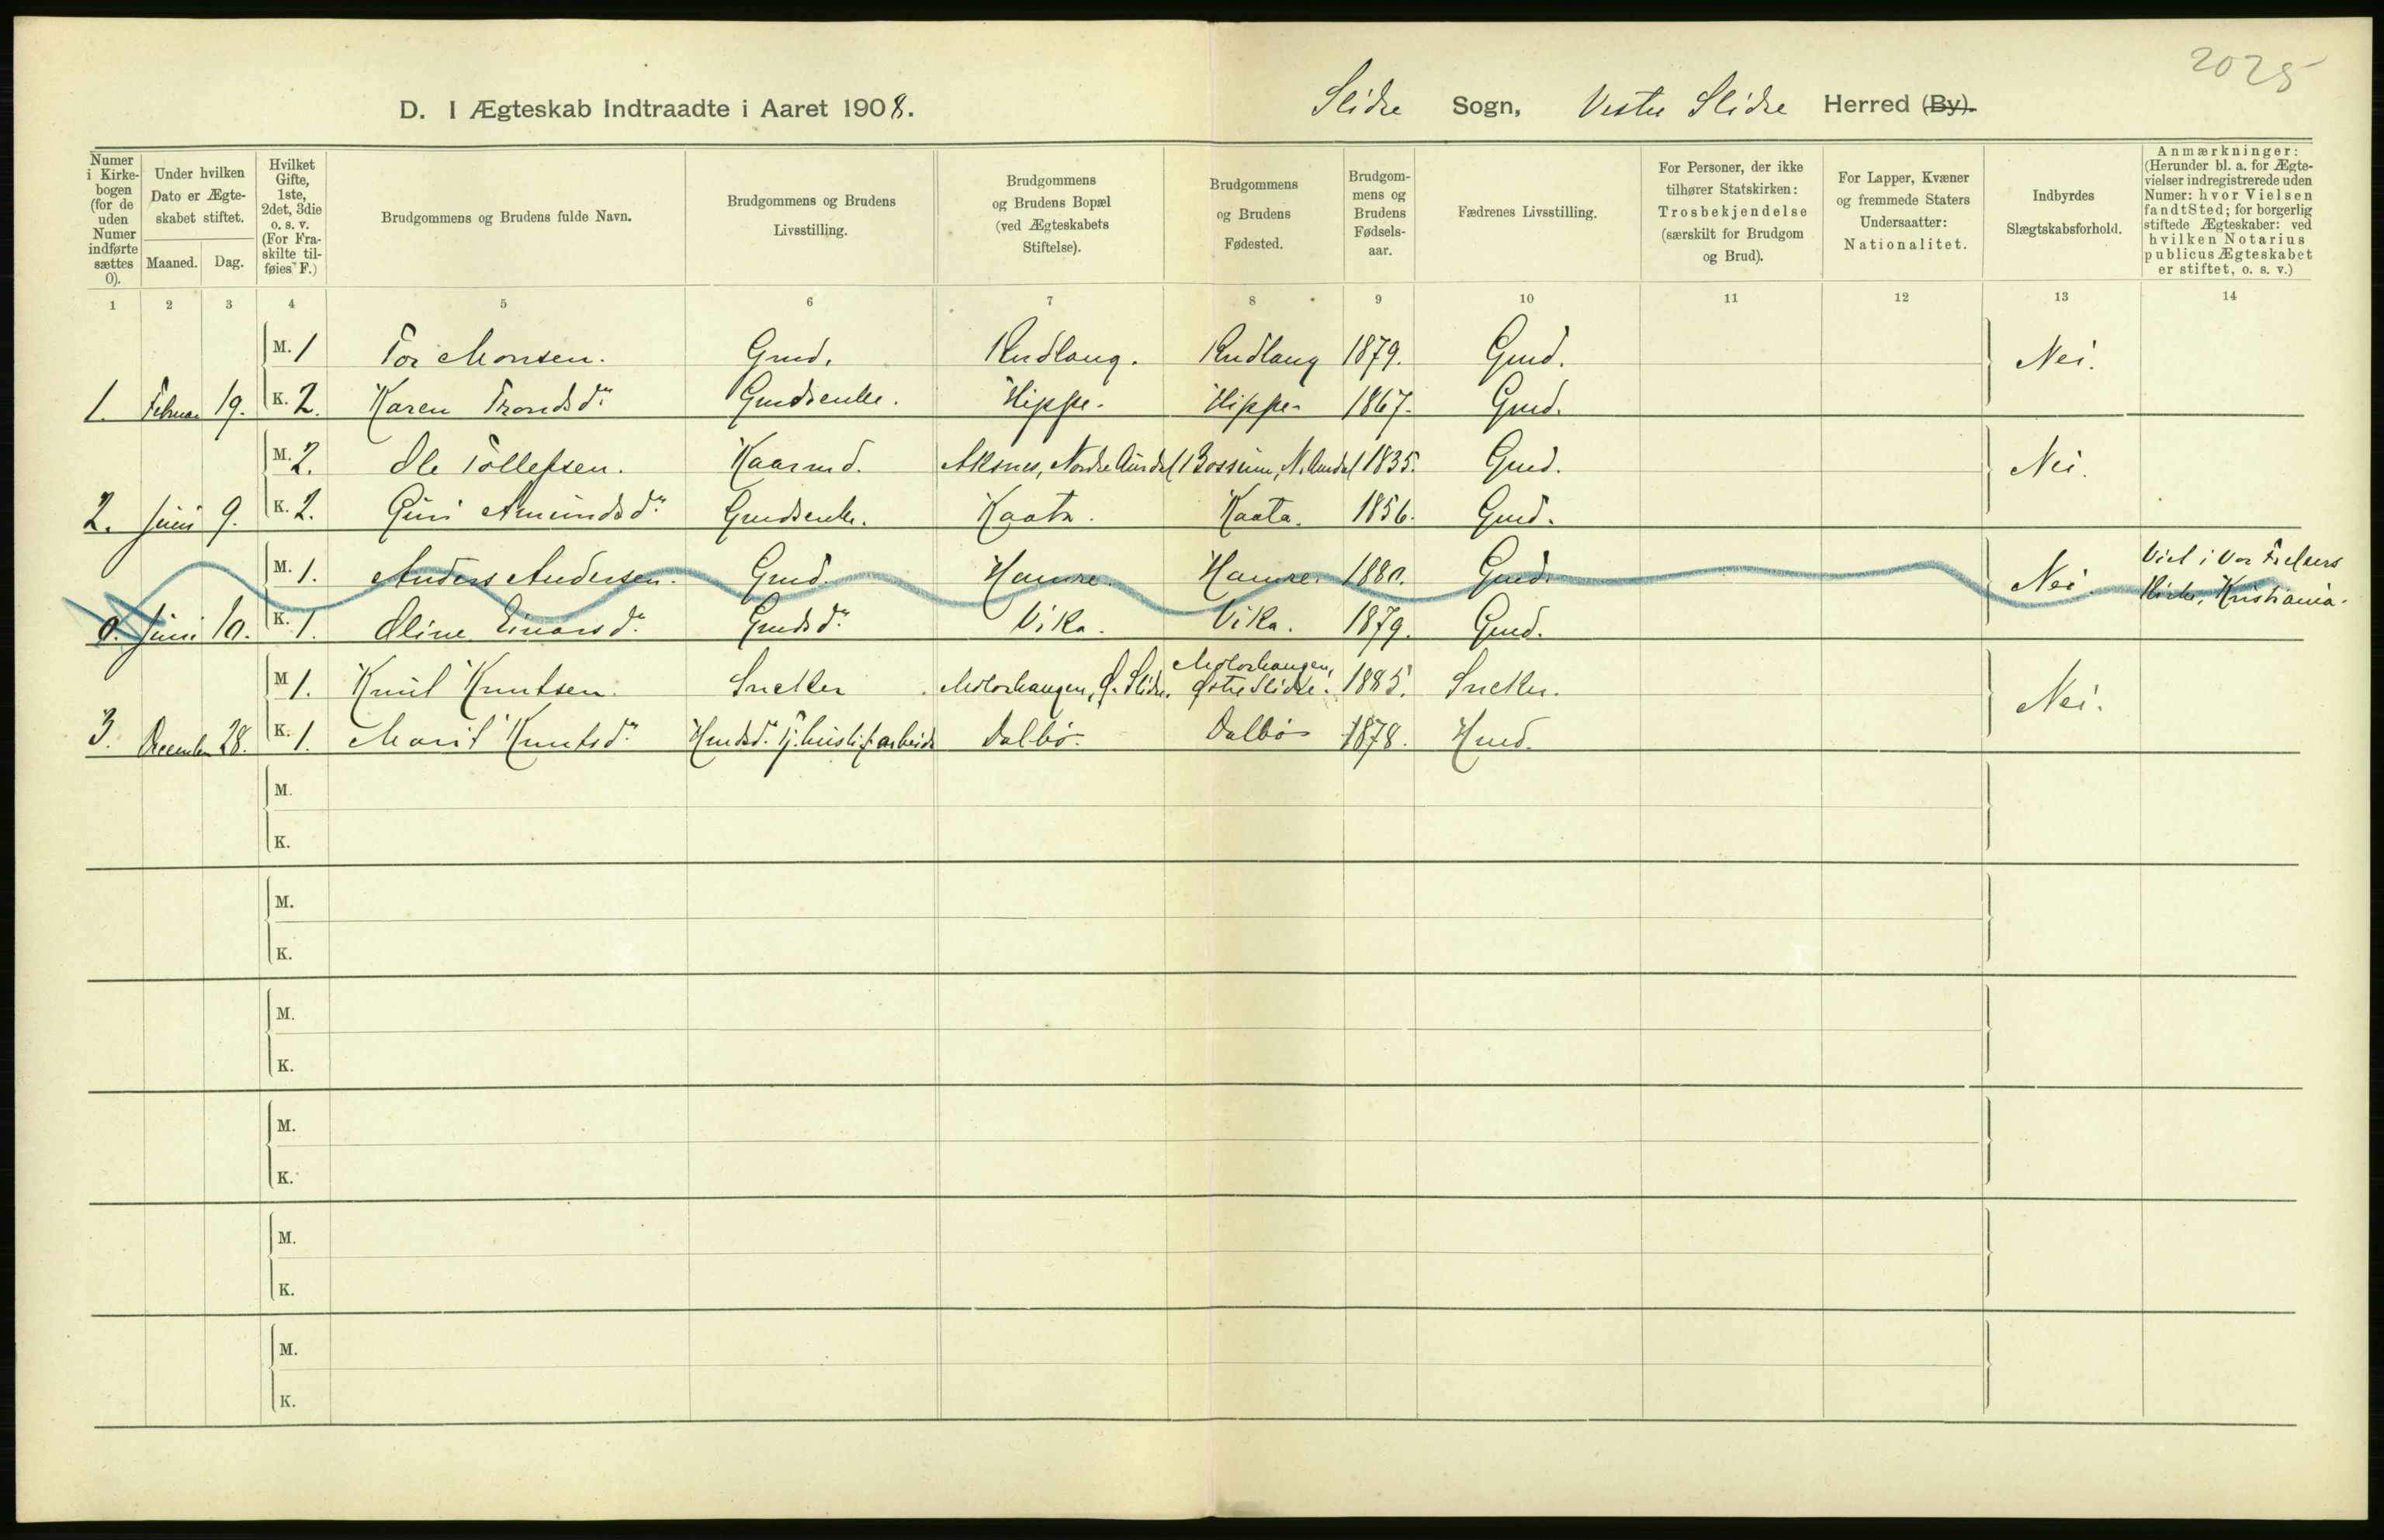 2025
D. I Ægteskab Indtraadte i Aaret 1908. Slidre Sogn, Vestre Slidre Herred (By).
Numer i Kirkebogen (for de uden Numer indførte sættes 0).
Under hvilken Dato er Ægteskabet stiftet.
Maaned. Dag.
Hvilket Gifte, 1ste, 2det, 3die o. s. v. (For Fraskilte tilføies F.)
Brudgommens og Brudens fulde Navn.
Brudgommens og Brudens Livsstilling.
Brudgommens og Brudens Bopæl (ved Ægteskabets Stiftelse).
Brudgommens og Brudens Fødested.
Brudgommens og Brudens Fødselsaar.
Fædrenes Livsstilling.
For Personer, der ikke tilhører Statskirken: Trosbekjendelse (særskilt for Brudgom og Brud).
For Lapper, Kvæner og fremmede Staters Undersaatter: Nationalitet.
Indbyrdes Slægtskabsforhold.
Anmærkninger: (Herunder bl. a. for Ægtevielser indregistrerede uden Numer: hvor Vielsen fandt Sted; for borgerlig stiftede Ægteskaber: ved hvilken Notarius publicus Ægteskabet er stiftet, o. s. v.)
1 2 3 4 5 6 7 8 9 10 11 12 13 14
M. 1 Tor Monsen. Grud. Rudlang. Rudlang 1879. Grud. Nei.
1. Februar 19. K. 2. Karen Tronds dr. Grudsenke. Hippe. Hippe. 1867. Grud.
M. 2. Ole Tollefsen. Kaarmd. Aksnes, Nordre Aurdal Bossum, N. Aurdal 1835. Grud. Nei.
2. Juni 9. K. 2. Guri Amunds dr. Grudsenke. Kaata. Kaata. 1856. Grud.
M. 1. Anders Andersen. Grud. Hamre. Hamre. 1880. Grud. Nei. Viet i Vor Frelsers
0. Juni 10. K. 1. Oline Einars dr. Gruds dr. Vika. Vika. 1879. Grud. Kirke, Kristiania.
M 1. Knut Knutsen. Snekker Moloshaugen, Ø. Slidre. Moloshaugen, Østre Slidre. 1885. Snekker. Nei.
3. December 28. K. 1. Marit Knuts dr. Hmds dr. Tj. huslig arbeide Dalbø. Dalbø 1878. Hmd.
M.
K.
M.
K.
M.
K.
M.
K.
M.
K.
M.
K.